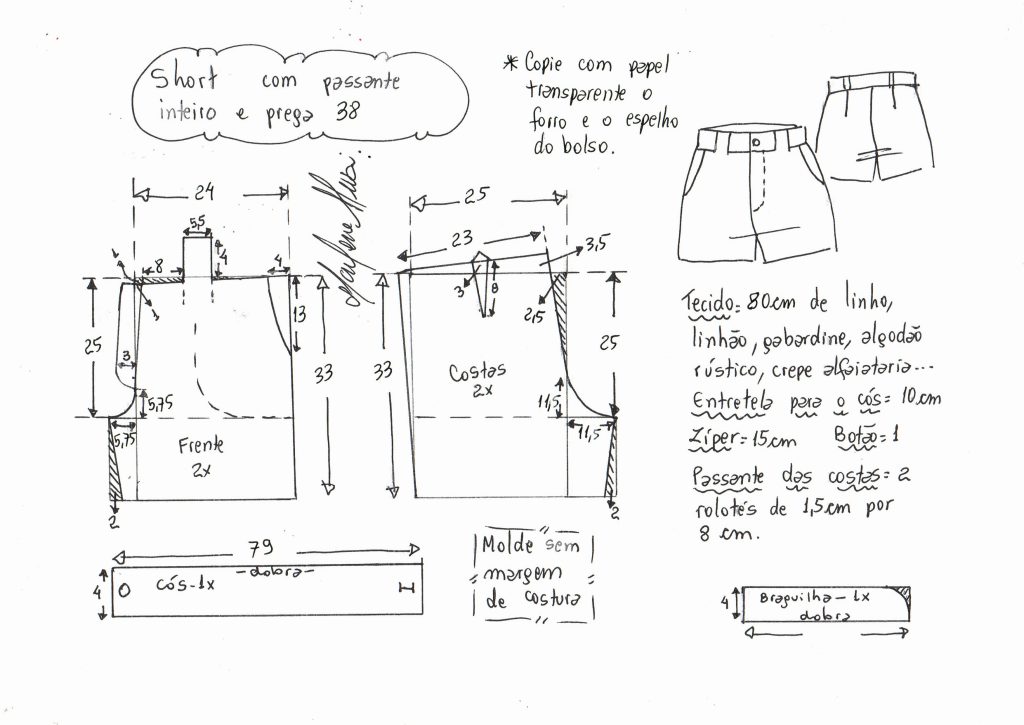 Short com passante
inteiro e prega 38
* Copie com papel
transparente o
forro e o espelho
do bolso.
24
5,5
4
8
4
1
1
13
25
3
33
5,75
5,75
Frente
2x
2
25
23
3,5
3
8
2,5
33
25
Costas
2x
11,5
11,5
2
Tecido= 80cm de linho,
linhão, gabardine, algodão
rústico, crepe alfaiataria...
Entretela para o cós= 10cm
Zíper= 15cm Botão= 1
Passante das costas= 2
rolotés de 1,5cm por
8 cm.
79
-dobra-
4
cós-1x
Molde sem
margem
de costura
4
Braguilha- 1x
dobra